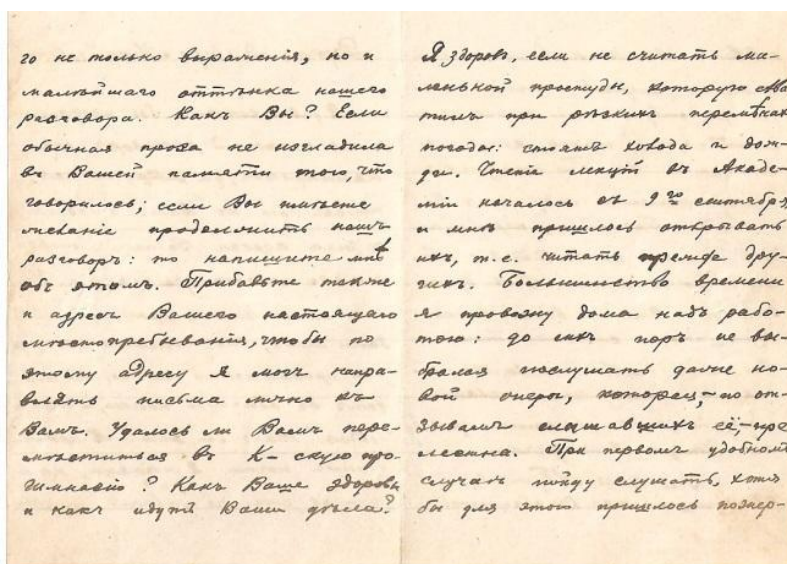 го не только выраженія, но и
малѣйшаго оттѣнка нашего
разговора. Какъ Вы? Если
обычная проза не изгладила
въ Вашей памяти того, что
говорилось; если Вы имѣете
желаніе продолжить нашъ
разговоръ: то напишите мнѣ
объ этомъ. Прибавьте также
и адресъ Вашего настоящаго
мѣстопребыванія, чтобы по
этому адресу я могъ направ-
влять письма лично къ
Вамъ. Удалось ли Вамъ пере-
мѣститься въ К-скую про-
гимназію? Какъ Ваше здоровье
и какъ идутъ Ваши дѣла?
Я здоровъ, если не считать ма-
ленькой простуды, которую схва
тилъ при рѣзкихъ перемѣнахъ
погоды: стоятъ холода и дож-
ди. Чтеніе лекцій въ Акаде-
міи началось съ 9го сентября
и мнѣ пришлось открывать
ихъ, т.е. читать прежде дру-
гихъ. Большинство времени
я провожу дома надъ рабо-
тою: до сихъ поръ не вы-
брался послушать даже но-
вой оперы, которая,-по от-
зывамъ слышавшихъ её,-пре
лестна. При первомъ удобномъ
случаѣ пойду слушать, хотя
бы для этого пришлось пожер-